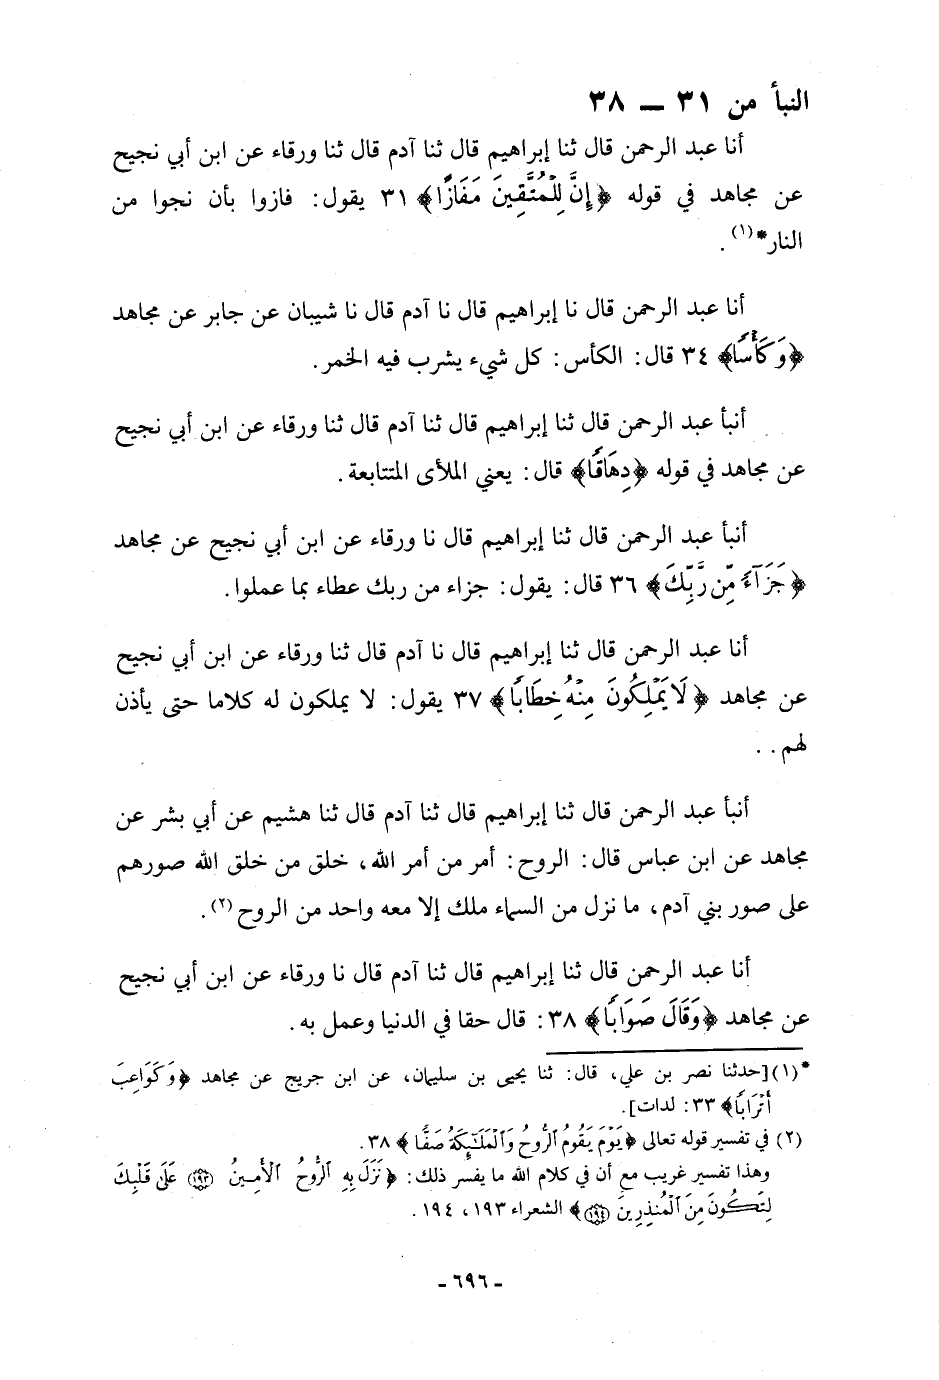 النبأ من ٣١ — ٣٨
أنا عبد الرحمن قال ثنا إبراهيم قال ثنا آدم قال ثنا ورقاء عن ابن أبي نجيح
عن مجاهد في قوله ﴿إِنَّ لِلْمُتَّقِينَ مَفَازًا﴾ ٣١ يقول: فازوا بأن نجوا من
النار*(١).
أنا عبد الرحمن قال نا إبراهيم قال نا آدم قال نا شيبان عن جابر عن مجاهد
﴿وَكَأْسًا﴾ ٣٤ قال: الكأس: كل شيء يشرب فيه الخمر.
أنبأ عبد الرحمن قال ثنا إبراهيم قال ثنا آدم قال ثنا ورقاء عن ابن أبي نجيح
عن مجاهد في قوله ﴿دِهَاقًا﴾ قال: يعني الملأى المتتابعة.
أنبأ عبد الرحمن قال ثنا إبراهيم قال نا ورقاء عن ابن أبي نجيح عن مجاهد
﴿جَزَآءً مِّن رَّبِّكَ﴾ ٣٦ قال: يقول: جزاء من ربك عطاء بما عملوا.
أنا عبد الرحمن قال ثنا إبراهيم قال نا آدم قال ثنا ورقاء عن ابن أبي نجيح
عن مجاهد ﴿لَا يَمْلِكُونَ مِنْهُ خِطَابًا﴾ ٣٧ يقول: لا يملكون له كلاما حتى يأذن
لهم..
أنبأ عبد الرحمن قال ثنا إبراهيم قال ثنا آدم قال ثنا هشيم عن أبي بشر عن
مجاهد عن ابن عباس قال: الروح: أمر من أمر الله، خلق من خلق الله صورهم
على صور بني آدم، ما نزل من السماء ملك إلا معه واحد من الروح(٢).
أنا عبد الرحمن قال ثنا إبراهيم قال ثنا آدم قال نا ورقاء عن ابن أبي نجيح
عن مجاهد ﴿وَقَالَ صَوَابًا﴾ ٣٨: قال حقا في الدنيا وعمل به.
*(١)[حدثنا نصر بن علي، قال: ثنا يحيى بن سليمان، عن ابن جريج عن مجاهد ﴿وَكَوَاعِبَ
أَتْرَابًا﴾ ٣٣: لدات].
(٢) في تفسير قوله تعالى ﴿يَوْمَ يَقُومُ ٱلرُّوحُ وَٱلْمَلَٰٓئِكَةُ صَفًّا﴾ ٣٨.
وهذا تفسير غريب مع أن في كلام الله ما يفسر ذلك: ﴿نَزَلَ بِهِ ٱلرُّوحُ ٱلْأَمِينُ ١٩٣ عَلَىٰ قَلْبِكَ
لِتَكُونَ مِنَ ٱلْمُنذِرِينَ ١٩٤﴾ الشعراء ١٩٣، ١٩٤.
- ٦٩٦ -